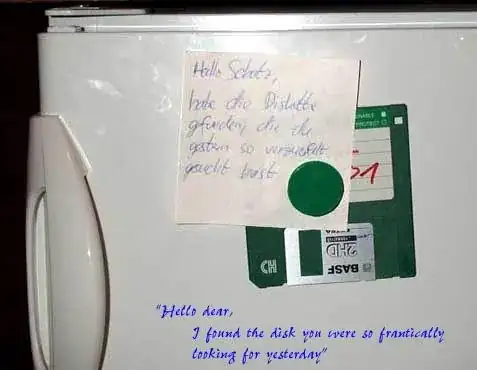 Hallo Schatz,
habe die Diskette
gefunden, die du
gestern so verzweifelt
gesucht hast
51
2HD
BASF
"Hello dear,
I found the disk you were so frantically
looking for yesterday"